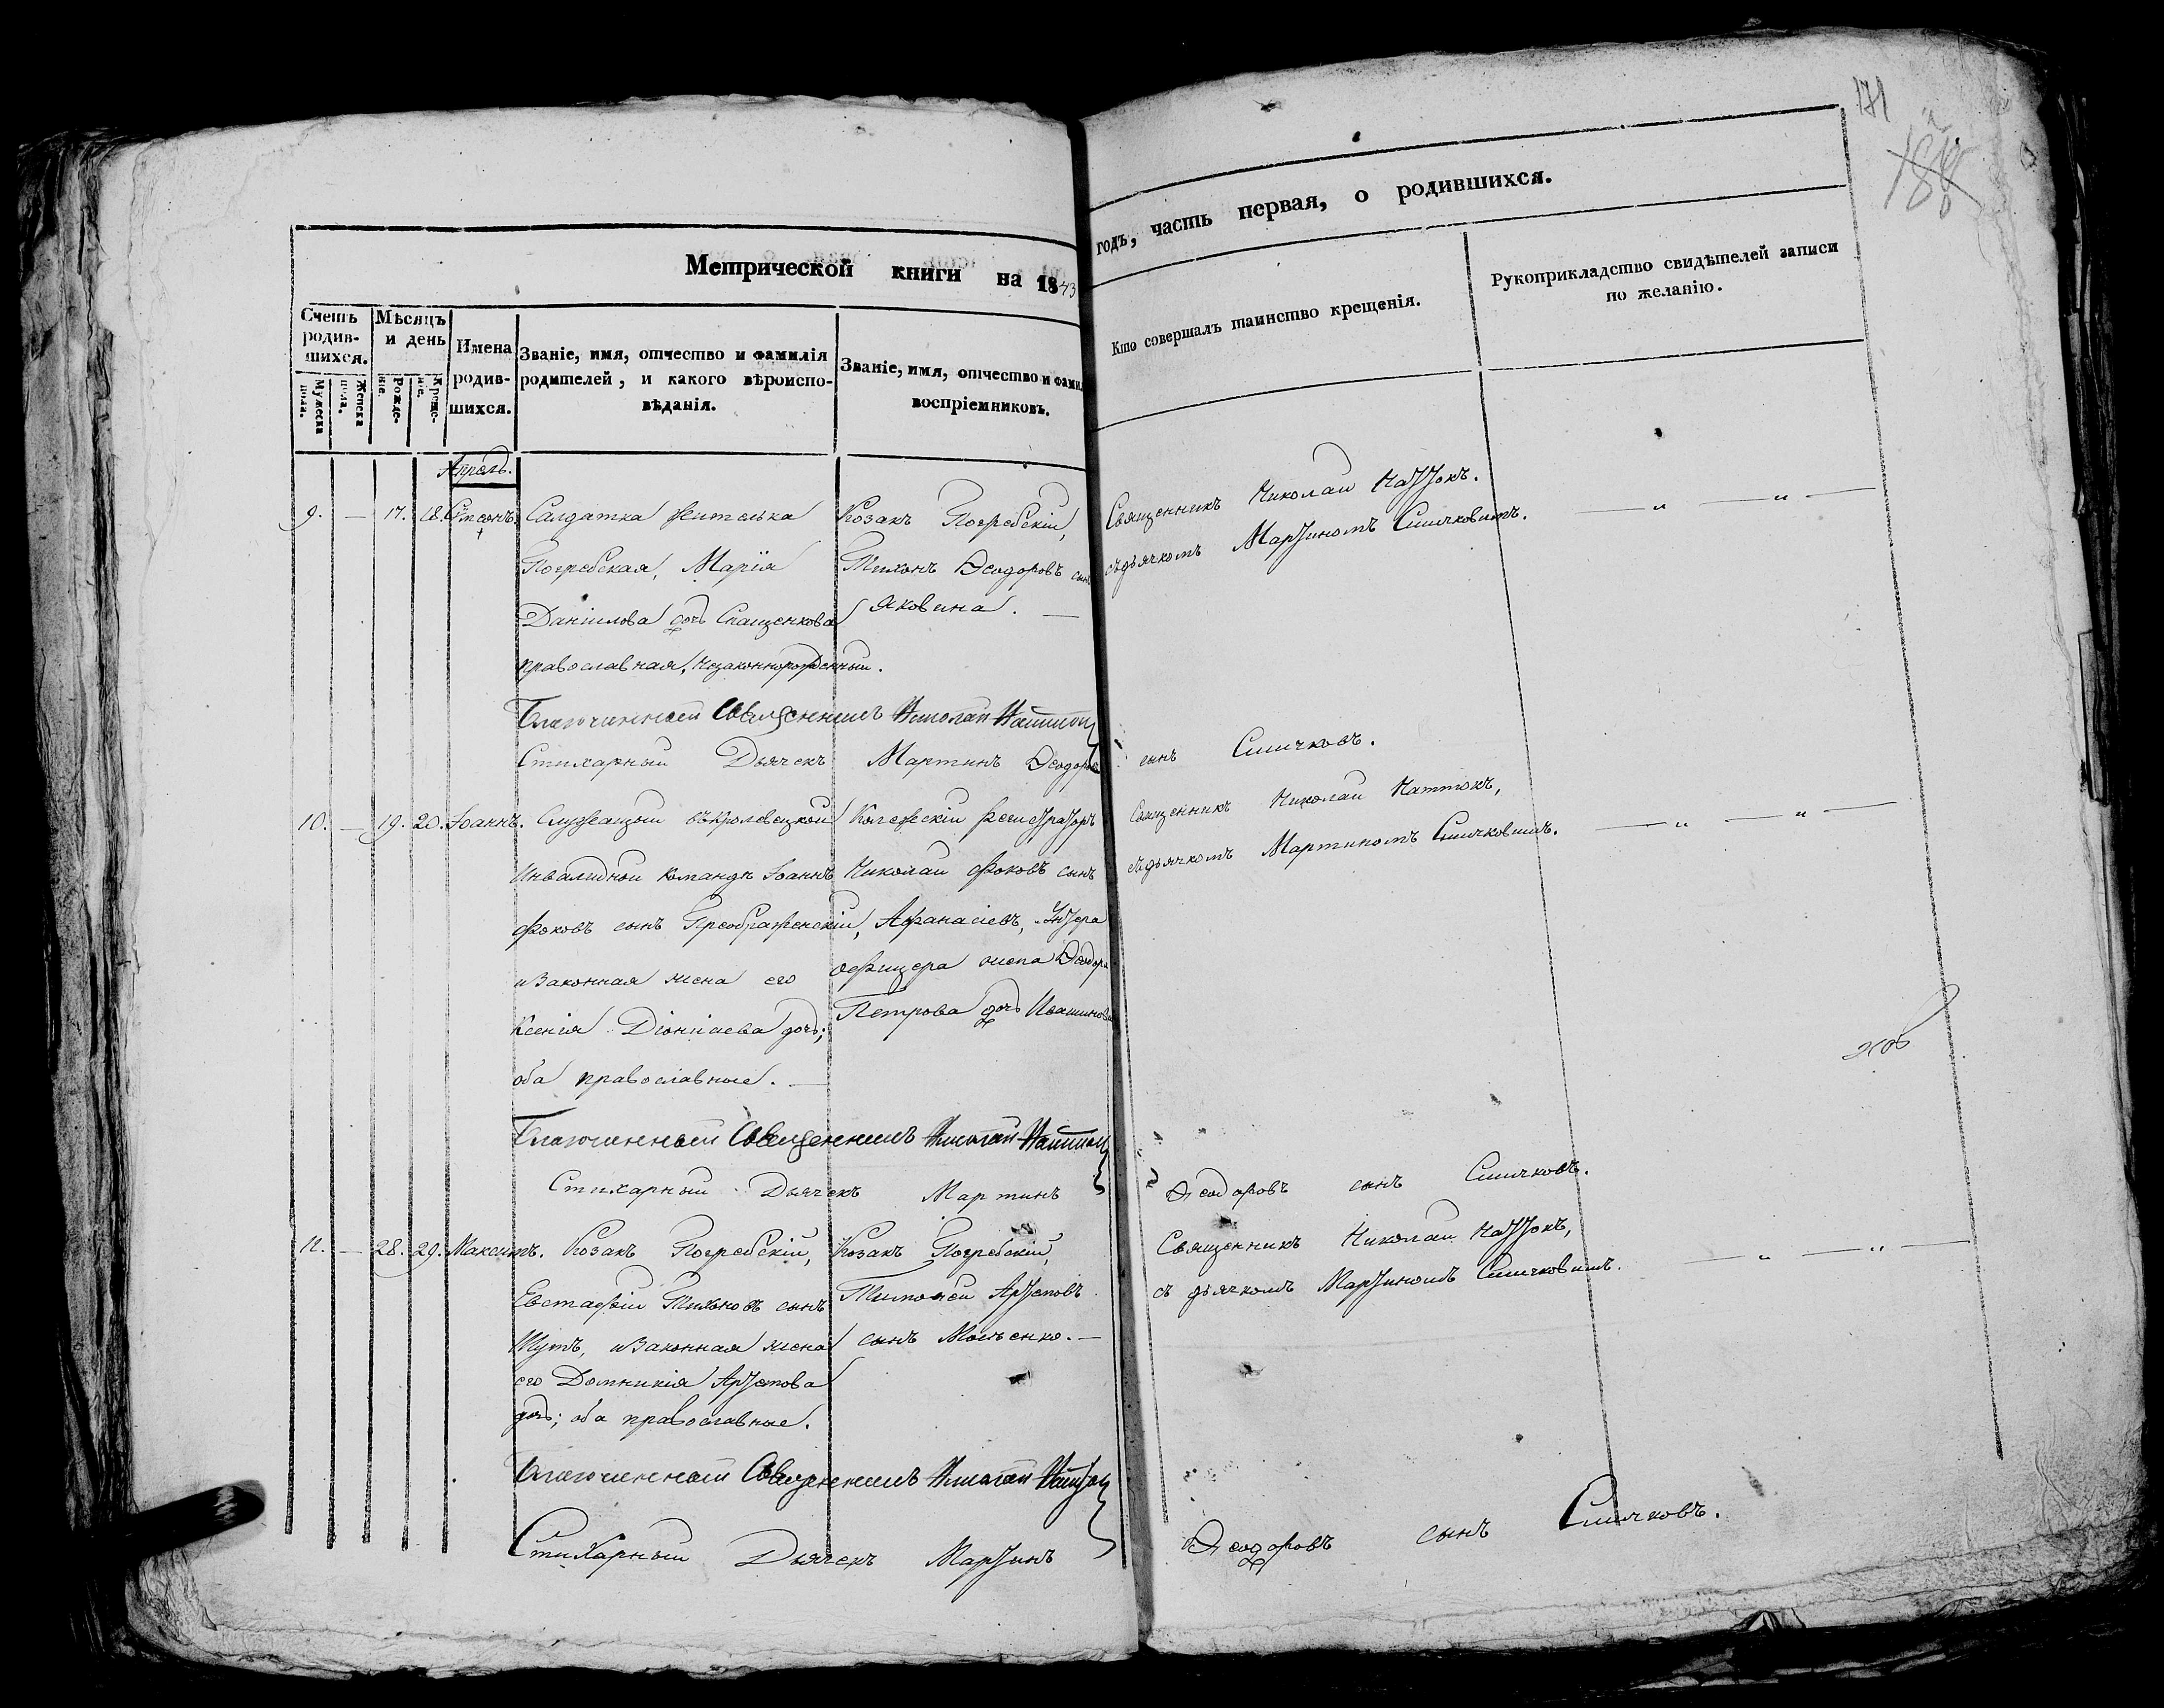 171
188
Метрической книги на 1843
годъ, часть первая, о родившихся.
Счетъ родив-шихся.
Мужеска пола.
Женска пола.
Мѣсяцъ и день
Рожде-нія.
Креще-нія.
Имена родив-шихся.
Званіе, имя, отчество и фамилія родителей, и какого вѣроиспо-вѣданія.
Званіе, имя, отчество и фами воспріемниковъ.
Кто совершалъ таинство крещенія.
Рукоприкладство свидѣтелей записи по желанію.
Апрель.
9. — 17. 18. Симеонъ.
Салдатка жителька
Погребская, Марія
Даніилова дочь Спащенкова
православная, Незаконнорожденный.
Козакъ Погребскій,
Тихонъ Ѳеодоровъ сынъ
Яковина. —
Священникъ Николай Наттокъ.
съдьячкомъ Мартиномъ Сличковимъ.
Благочинный Священникъ Николай Наттокъ
Стихарный Дьячекъ Мартинъ Ѳеодоровъ сынъ Сличковъ.
10. — 19. 20. Іоаннъ.
Служащій въКролевецкой
Инвалидной командѣ Іоаннъ
Фоковъ сынъ Преображенскій,
иЗаконная жена его
Ксенія Діонисіева дочь;
оба православные. —
Колежскій Регистраторъ
Николай Фоковъ сынъ
Афанасіевъ, Унтера
офицера жена Ѳеодора
Петрова дочь Ивашинова
Священникъ Николай Наттокъ,
съдьячкомъ Мартиномъ Сличковимъ.
Благочинный Священникъ Николай Наттокъ
Стихарный Дьячекъ Мартинъ Ѳеодоровъ сынъ Сличковъ.
11. — 28. 29. Максимъ.
Козакъ Погребскій,
Евстафій Тихновъ сынъ
Шутъ, иЗаконная жена
его Домникія Артемова
дочь; оба православные.
Козакъ Погребскій,
Тимофей Артемовъ
сынъ Мосьенко. —
Священникъ Николай Наттокъ,
съ дьячкомъ Мартиномъ Сличковимъ.
Благочинный Священникъ Николай Наттокъ
Стихарный Дьячекъ Мартинъ Ѳеодоровъ сынъ Сличковъ.